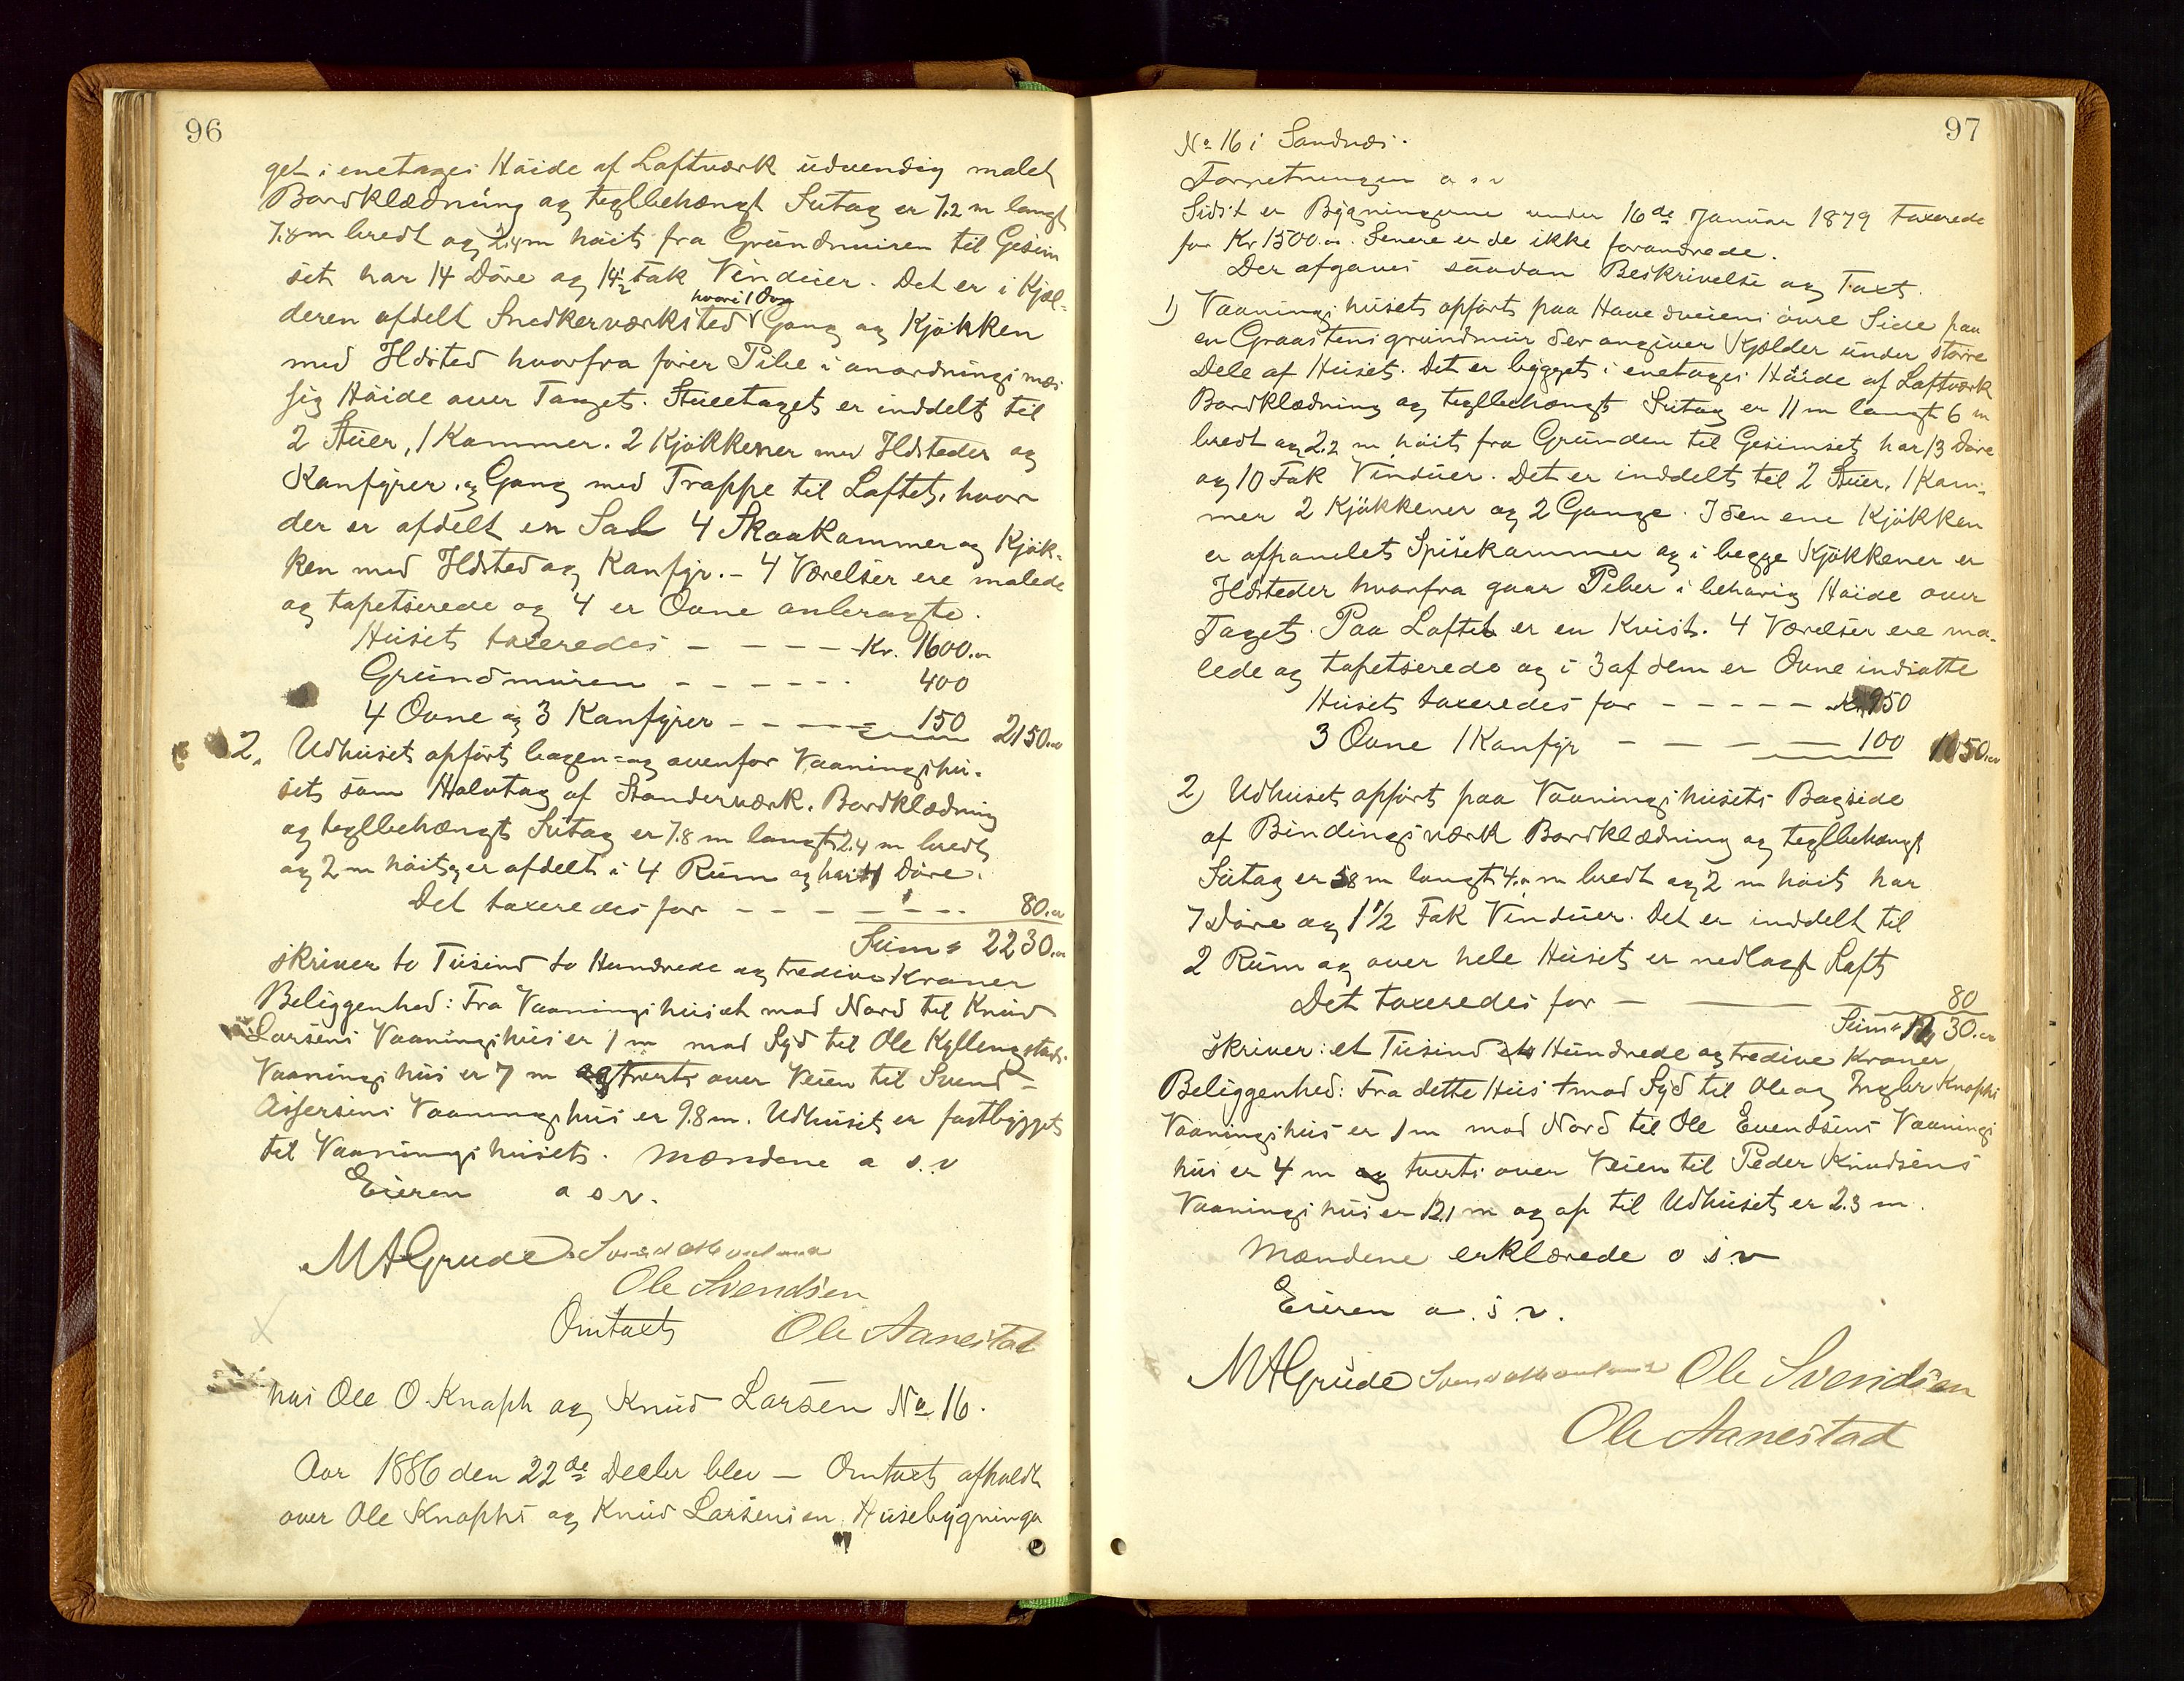 96
get i enetages Høide af Laftværk udvendig malet
Bordklædning og teglbehængt Sutag er 7.2 m langt
7.8 m bredt og 2.4 m høit fra Grundmuren til Gesim
set har 14 Døre og 14½ Fak Vinduer. Det er i Kjæl-
hvori 1 Ovn
deren afdelt Snedkerværksted Gang og Kjøkken
med Ildsted hvorfra fører Pibe i anordningsmæs
sig Høide over Taget. Stueetaget er inddelt til
2 Stuer, 1 Kammer. 2 Kjøkkener med Ildsteder og
Komfyrer. og Gang med Trappe til Loftet, hvor
der er afdelt en Sal 4 Skraakammer og Kjøk-
ken med Ildsted og Komfyr. - 4 Værelser ere malede
og tapetserede og 4 er Ovne anbragte.
Huset taxeredes - - - - - Kr. 1600.00
Grundmuren - - - - - - 400
4 Ovne og 3 Komfyrer - - - - - 150 2150.00
2. Udhuset opført bagen- og ovenfor Vaaningshu-
set som Halvtag af Standerværk. Bordklædning
og teglbehængt Sutag er 7.8 m langt 2.4 m bredt
og 2 m høit, er afdelt i 4 Rum og har 4 Døre.
Det taxeredes for - - - - - - 80.00
Sum = 2230.00
skriver to Tusind to Hundrede og tredive Kroner
Beliggenhed: Fra Vaaningshuset mod Nord til Knud
Larsens Vaaningshus er 1 m mod Syd til Ole Kyllengstads
Vaaningshus er 7 m og tverts over Veien til Svend
Assersens Vaaningshus er 9.8 m. Udhuset er fastbygget
til Vaaningshuset. Mændene o. s. v
Eieren o s. v.
MAGrude Svend
Ole Svendsen
Omtaxt Ole Aanestad
hos Ole O Knaph og Knud Larsen No 16.
Aar 1886 den 22de Decbr blev — Omtaxt afholdt
over Ole Knaphs og Knud Larsens en. Husebygninger
97
No 16 i Sandnæs.
Forretningen o s v
Sidst er Bygningerne under 16de Januar 1879 taxerede
for Kr 1500.00. Senere er de ikke forandrede.
Der afgaves saadan Beskrivelse og Taxt.
1) Vaaningshuset opført paa Hovedveiens øvre Side paa
en Graastens grundmur der angiver Kjælder under større
Dele af Huset. Det er bygget i enetages Høide af Laftværk
Bordklædning og teglbehængt Sutag er 11 m langt 6 m
bredt og 2.2 m høit fra Grunden til Gesimset har 13 Døre
og 10 Fak Vinduer. Det er inddelt til 2 Stuer, 1 Kam-
mer 2 Kjøkkener og 2 Gange. I den ene Kjøkken
er afpanelet Spisekammer og i begge Kjøkkener er
Ildsteder hvorfra gaar Piber i behørig Høide over
Taget. Paa Loftet er en Kvist. 4 Værelser ere ma-
lede og tapetserede og i 3 af dem er Ovne indsatte
Huset taxeredes for - - - - - Kr 950
3 Ovne 1 Komfyr - - - - 100 1050.00
2) Udhuset opført paa Vaaningshusets Bagside
af Bindingsværk Bordklædning og teglbehængt
Sutag er 8 m langt 4.0 m bredt og 2 m høit har
7 Døre og 1 1/2 Fak Vinduer. Det er inddelt til
2 Rum og over hele Huset er nedlagt Loft
Det taxeredes for — — — 80
Sum = 1130.00
skriver: et Tusind et Hundrede og tredive Kroner
Beliggenhed: Fra dette Hus mod Syd til Ole og Ingbr Knaphs
Vaaningshus er 1 m mod Nord til Ole Evendsens Vaanings
hus er 4 m og tverts over Veien til Peder Knudsens
Vaaningshus er 12.1 m og op til Udhuset er 2.3 m.
Mændene erklærede o s. v
Eieren o. s. v.
MAGrude Svend Ole Svendsen
Ole Aanestad